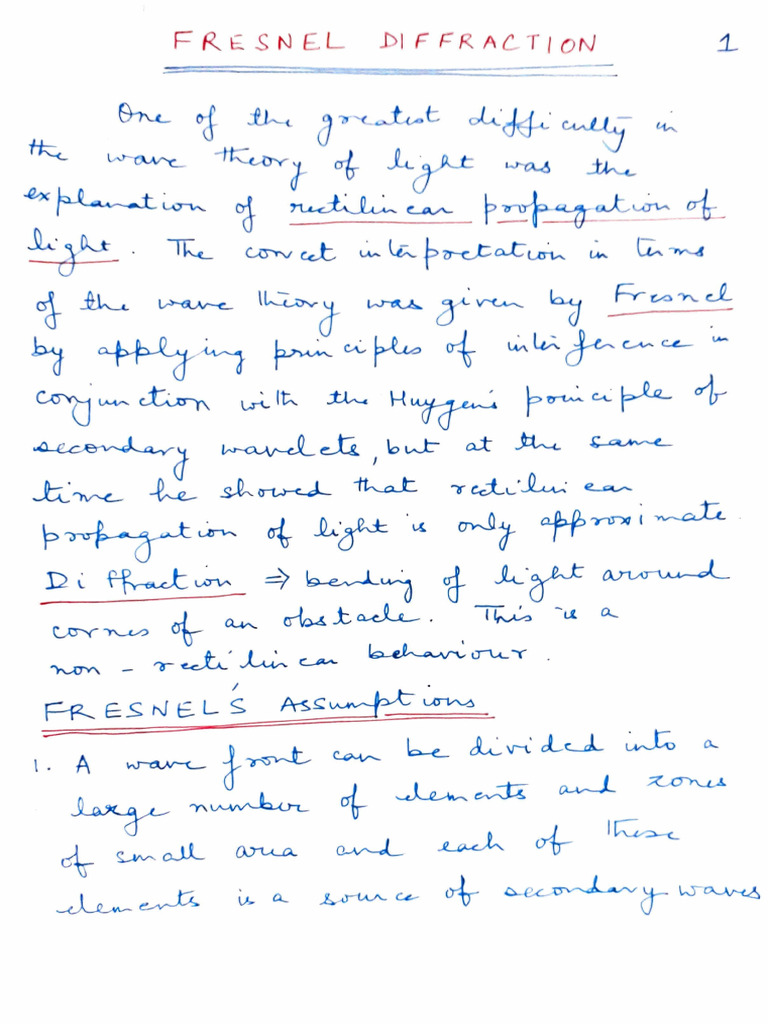 FRESNEL DIFFRACTION 1
One of the greatest difficulty in
the wave theory of light was the
explanation of rectilinear propagation of
light. The correct interpretation in terms
of the wave theory was given by Fresnel
by applying principles of interference in
conjunction with the Huygen's principle of
secondary wavelets, but at the same
time he showed that rectilinear
propagation of light is only approximate.
Diffraction ⇒ bending of light around
cornes of an obstacle. This is a
non-rectilinear behaviour.
FRESNEL'S Assumptions
1. A wave front can be divided into a
large number of elements and zones
of small area and each of these
elements is a source of secondary waves